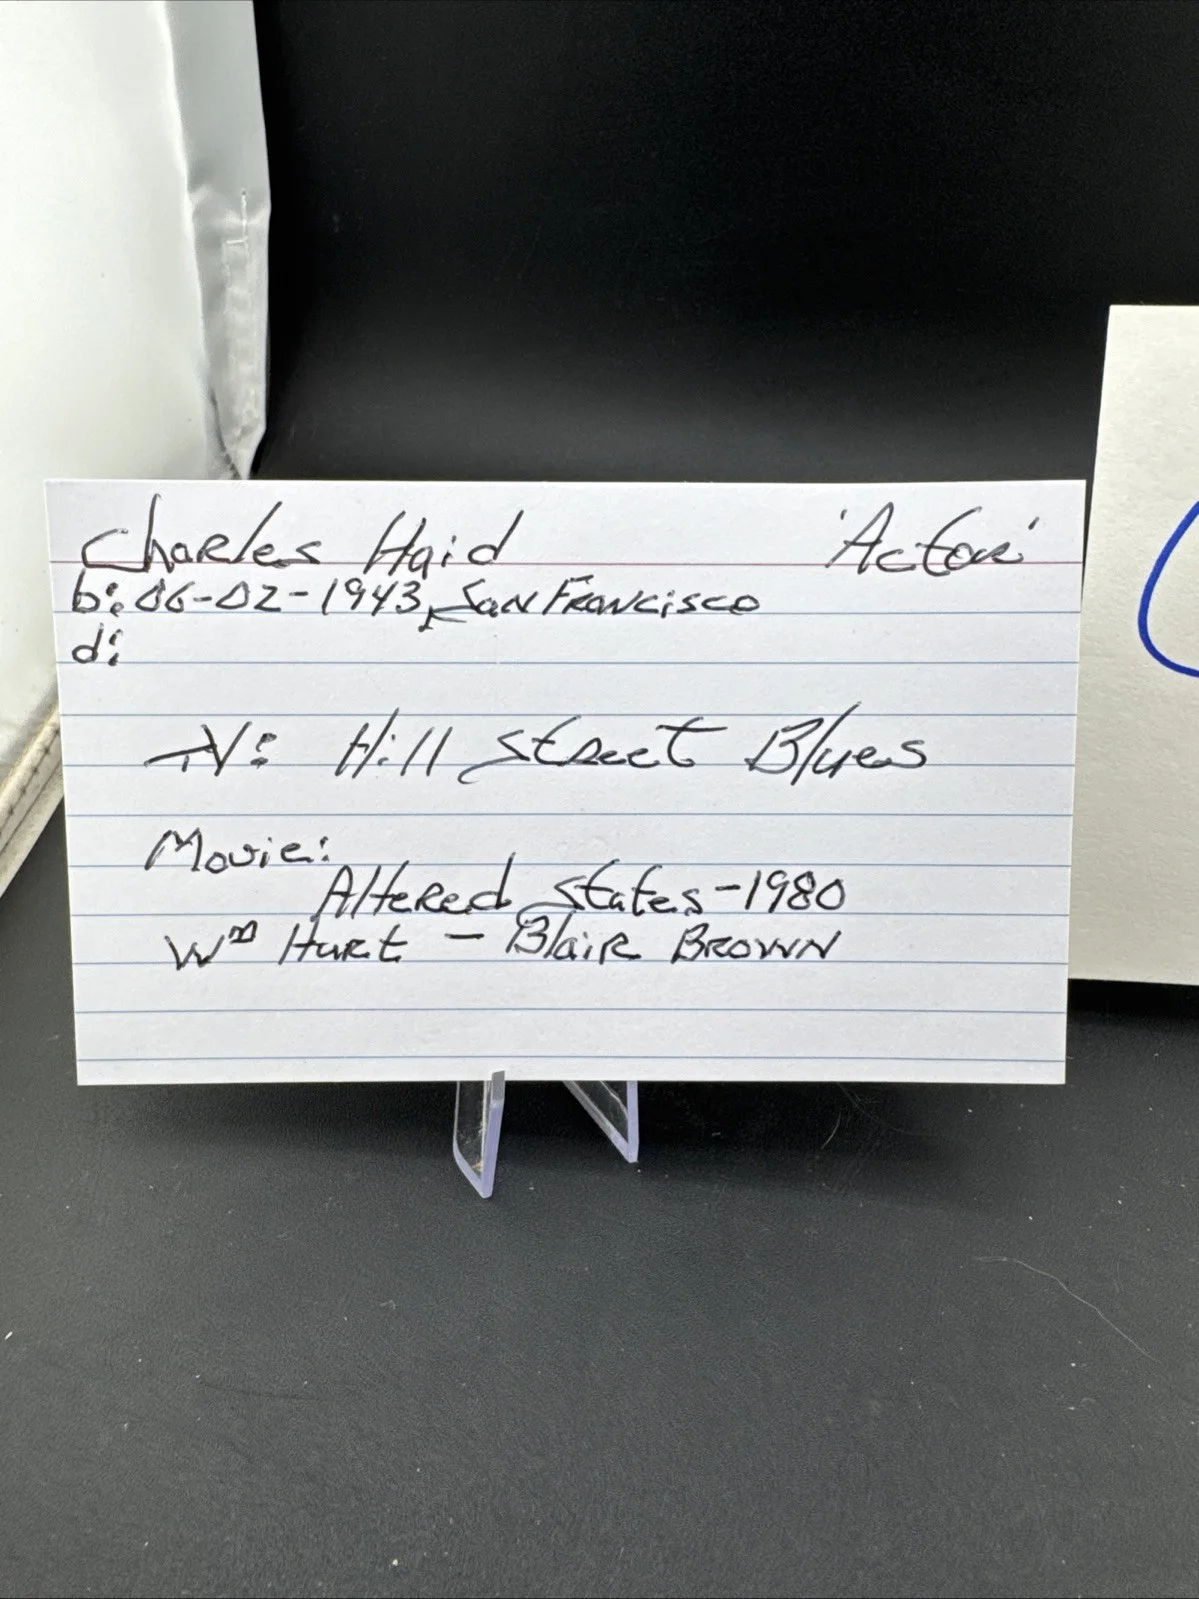 Charles Haid 'Actor'
b: 06-02-1943, San Francisco
d:
TV: Hill Street Blues
Movie:
Altered States-1980
Wm Hurt - Blair Brown